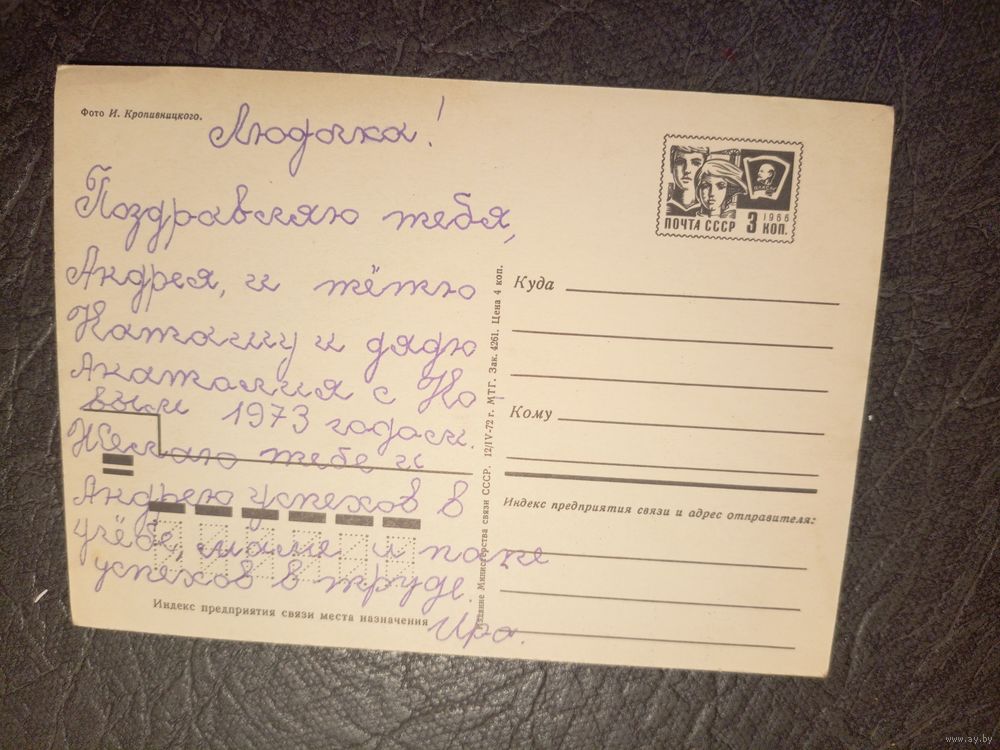 Фото И. Кропивницкого.
Людочка!
Поздравляю тебя,
Андрея, и тётю
Наташу и дядю
Анатолия с Но-
вым 1973 годом.
Желаю тебе и
Андрею успехов в
учёбе, маме и папе
успехов в труде.
Ира.
Индекс предприятия связи места назначения
Издание Министерства связи СССР. 12/IV-72 г. МТГ. Зак. 4261. Цена 4 коп.
ВЛКСМ
1966
ПОЧТА СССР 3 КОП.
Куда
Кому
Индекс предприятия связи и адрес отправителя:
www.ay.by